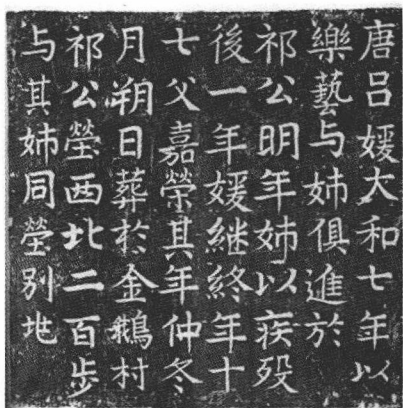 唐吕媛大和七年以
樂藝与姉俱進於
祁公明年姉以疾殁
後一年媛継終年十
七父嘉榮其年仲冬
月朔日葬於金鵝村
祁公塋西北二百歩
与其姉同塋别地